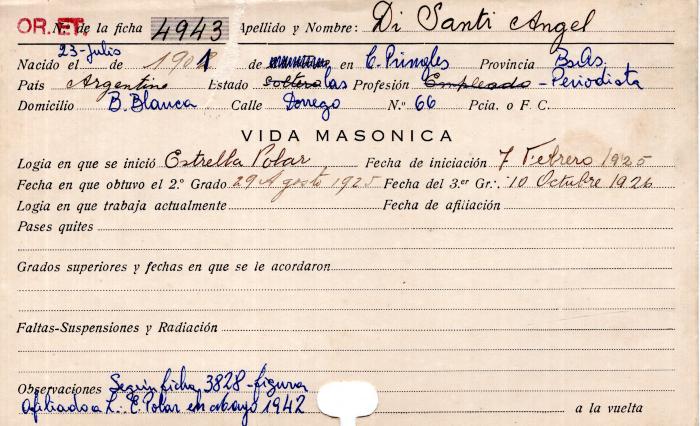 OR. ET. N.º de la ficha 4943 Apellido y Nombre: Di Santi Angel
23-Julio
Nacido el de 1901 de en C. Pringles Provincia Bs.As.
Pais Argentina Estado soltero cas Profesión Empleado - Periodista
Domicilio B. Blanca Calle Dorrego N.º 66 Pcia. o F. C.
VIDA MASONICA
Logia en que se inició Estrella Polar Fecha de iniciación 7 Febrero 1925
Fecha en que obtuvo el 2.º Grado 29 Agosto 1925 Fecha del 3.er Gr.: 10 Octubre 1926
Logia en que trabaja actualmente Fecha de afiliación
Pases quites
Grados superiores y fechas en que se le acordaron
Faltas-Suspensiones y Radiación
Observaciones Según ficha 3828 - figura
afiliado a L∴ E. Polar en Mayo 1942 a la vuelta